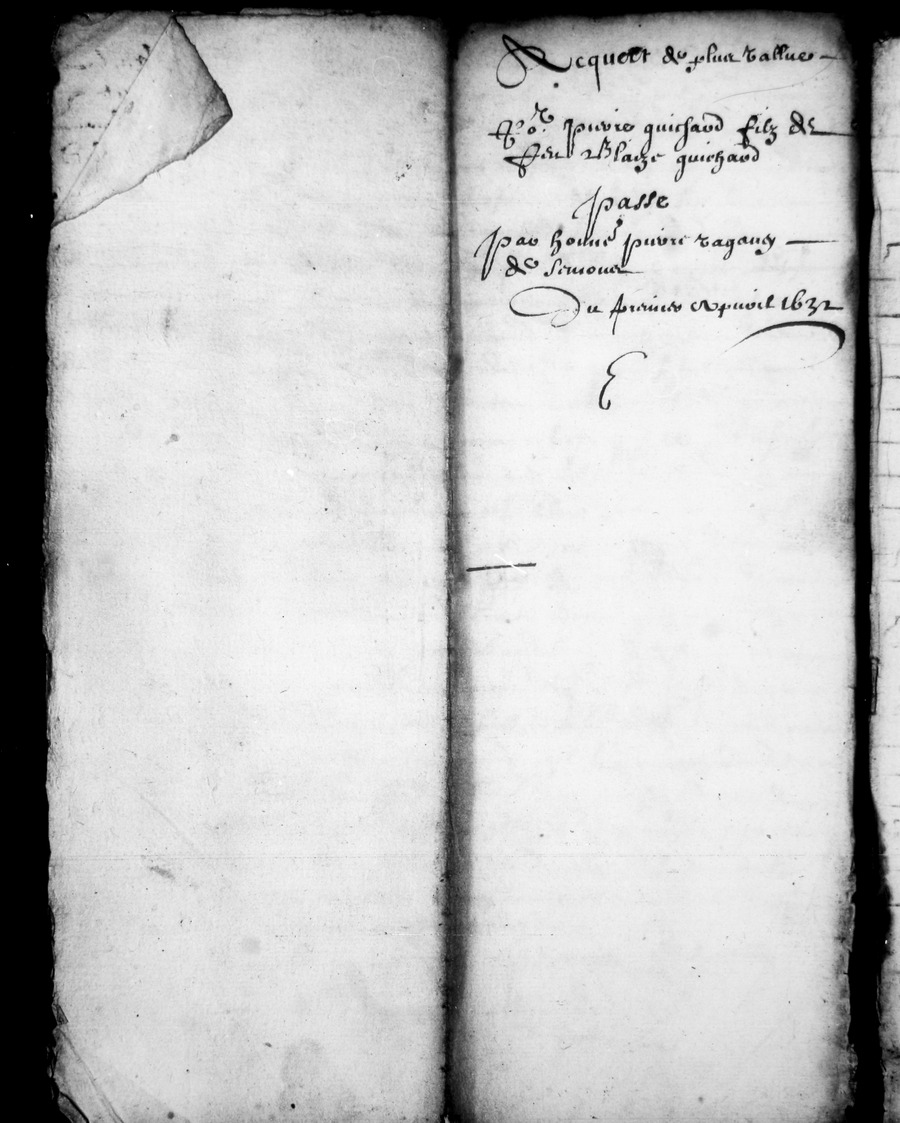 Acquect de plus vallue
Po.r pierre guichard filz de
feu Blaize guichard
passe
par honne pierre
de
Du premier Apvril 1632